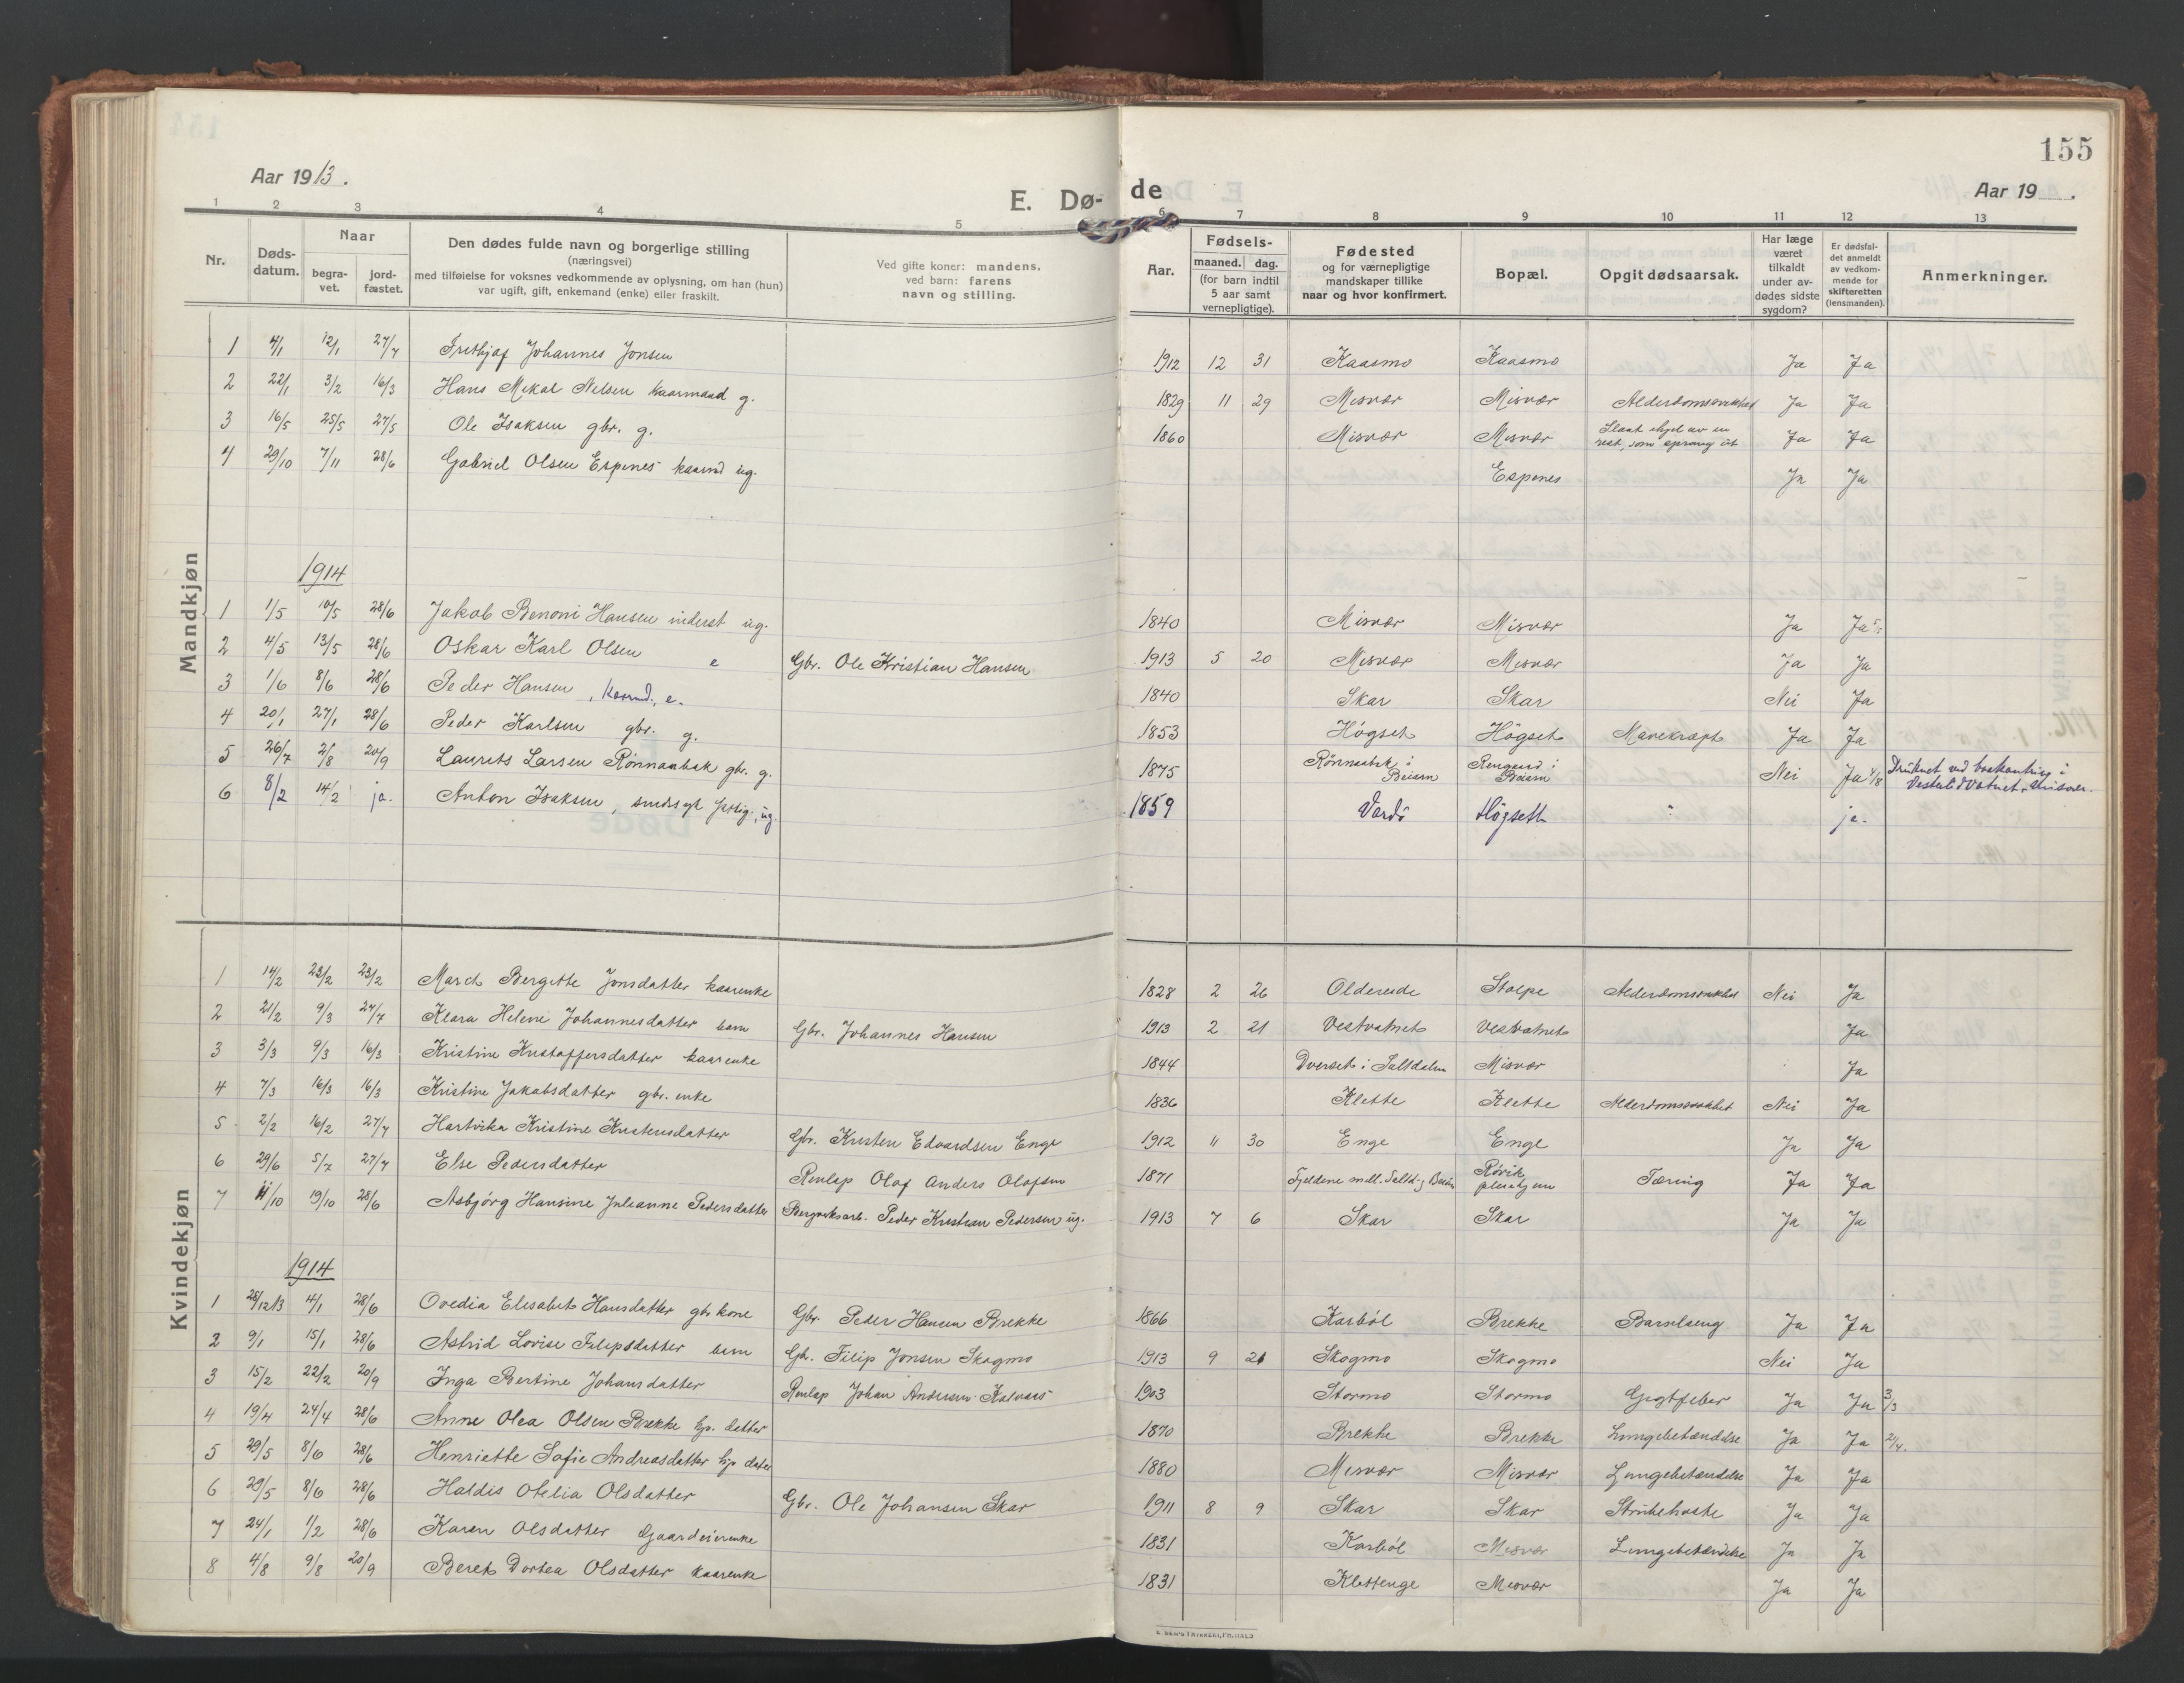 155
Aar 1913.
E. Dø-
de
Aar 19 .
1 2 3 4 5 6 7 8 9 10 11 12 13
Nr.
Døds-
datum.
Naar
begra-
vet.
jord-
fæstet.
Den dødes fulde navn og borgerlige stilling
(næringsvei)
med tilføielse for voksnes vedkommende av oplysning, om han (hun)
var ugift, gift, enkemand (enke) eller fraskilt.
Ved gifte koner: mandens,
ved barn: farens
navn og stilling.
Aar.
Fødsels-
maaned. dag.
(for barn indtil
5 aar samt
vernepligtige).
Fødested
og for værnepligtige
mandskaper tillike
naar og hvor konfirmert.
Bopæl.
Opgit dødsaarsak.
Har læge
været
tilkaldt
under av-
dødes sidste
sygdom?
Er dødsfal-
det anmeldt
av vedkom-
mende for
skifteretten
(lensmanden).
Anmerkninger.
Mandkjøn
1 4/1 12/1 27/7 Frithjof Johannes Jonsen 1912 12 31 Kaasmo Kaasmo Ja Ja
2 22/1 3/2 16/3 Hans Mikal Nilsen kaarmand g. 1829 11 29 Misvær Misvær Alderdomssvakhet Ja Ja
3 16/5 25/5 27/5 Ole Isaksen gbr. g. 1860 Misvær Misvær Slaat ihjel av en
rest, som sprang ut Ja Ja
4 29/10 7/11 28/6 Gabriel Olsen Espenes kaarmd ug. Espenes Ja Ja
1914
1 1/5 10/5 28/6 Jakob Benoni Hansen inderst ug. 1840 Misvær Misvær Ja Ja 5/5
2 4/5 13/5 28/6 Oskar Karl Olsen e Gbr. Ole Kristian Hansen 1913 5 20 Misvær Misvær Ja Ja
3 1/6 8/6 28/6 Peder Hansen, kaarmd., e. 1840 Skar Skar Nei Ja
4 20/1 27/1 28/6 Peder Karlsen gbr. g. 1853 Høgset Høgset Mavekræft Ja Ja
5 26/7 2/8 20/9 Laurits Larsen Rønnaabak gbr. g. 1875 Rønnaabak i
Beiarn i
Beiarn Nei Ja 4/8 Druknet ved baatkantring i
Vestvatnet, Misvær.
6 8/2 14/2 ja. Anton Isaksen, sindssyk, ug. 1859 Vardø Høgseth " ja.
Kvindekjøn
1 14/2 23/2 23/2 Maret Bergitte Jonsdatter kaarenke 1828 2 26 Oldereide Stolpe Alderdomssvakhet Nei Ja
2 21/2 9/3 27/7 Klara Helene Johannesdatter barn Gbr. Johannes Hansen 1913 2 21 Vestvatnet Vestvatnet Ja
3 3/3 9/3 16/3 Kristine Kristoffersdatter kaarenke 1844 Dverset i Saltdalen Misvær Ja
4 7/3 16/3 16/3 Kristine Jakobsdatter gbr. enke 1836 Klette Klette Alderdomssvakhet Nei Ja
5 2/2 16/2 27/7 Hartvika Kristine Kristensdatter Gbr. Kristen Edvardsen Enge 1912 11 30 Enge Enge Ja Ja
6 29/6 5/7 27/7 Else Pedersdatter Renlap Olof Anders Olofsen 1871 Fjeldene mell. Saltd. og Beiarn Røvik
pleiehjem Tæring Ja Ja
7 11/10 19/10 28/6 Asbjørg Hansine Julianne Pedersdatter Bergverksarb. Peder Kristian Pedersen ug. 1913 7 6 Skar Skar Ja Ja
1914
1 28/12 13 4/1 28/6 Ovedia Elisabet Hansdatter gbr kone Gbr. Peder Hansen Brekke 1866 Karbøl Brekke Barselseng Ja Ja
2 9/1 15/1 28/6 Astrid Lovise Filipsdatter barn Gbr. Filip Jonsen Skogmo 1913 9 21 Skogmo Skogmo Nei Ja
3 15/2 22/2 20/9 Inga Bertine Johansdatter Renlap Johan Andersen Kalvaas 1903 Stormo Stormo Gigtfeber Ja Ja 3/3
4 19/4 24/4 28/6 Anne Olea Olsen Brekke gp. datter 1870 Brekke Brekke Lungebetændelse Ja Ja 2/4.
5 29/5 8/6 28/6 Henriette Sofie Andreasdatter gp datter 1880 Misvær Misvær Lungebetændelse Ja Ja
6 29/5 8/6 28/6 Haldis Otelia Olsdatter Gbr. Ole Johansen Skar 1911 8 9 Skar Skar Strubehoste Ja Ja
7 24/1 1/2 28/6 Karen Olsdatter Gaardeierenke 1831 Karbøl Misvær Lungebetændelse Ja Ja
8 4/8 9/8 20/9 Beret Dortea Olsdatter kaarenke 1831 Klettenge Misvær Ja Ja